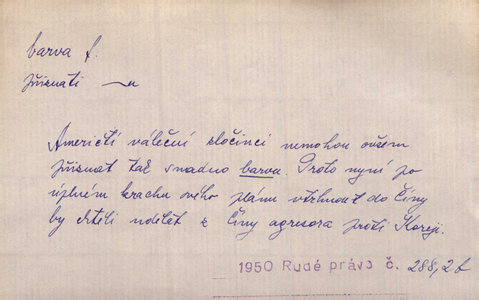 barva f.
přiznati ~u
Američtí váleční zločinci nemohou ovšem
přiznat tak snadno barvu. Proto nyní po
úplném krachu svého plánu vtrhnout do Číny
by chtěli udělat z Číny agresora proti Koreji.
1950 Rudé právo č. 288, 2